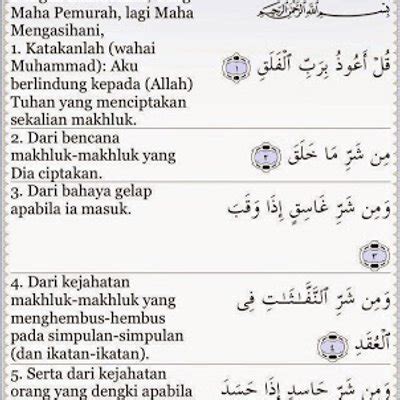 Maha Pemurah, lagi Maha
Mengasihani,
بِسْمِ اللَّهِ الرَّحْمَٰنِ الرَّحِيمِ
1. Katakanlah (wahai
Muhammad): Aku
berlindung kepada (Allah)
Tuhan yang menciptakan
sekalian makhluk.
قُلْ أَعُوذُ بِرَبِّ ٱلْفَلَقِ ١
2. Dari bencana
makhluk-makhluk yang
Dia ciptakan.
مِن شَرِّ مَا خَلَقَ ٢
3. Dari bahaya gelap
apabila ia masuk.
وَمِن شَرِّ غَاسِقٍ إِذَا وَقَبَ
٣
4. Dari kejahatan
makhluk-makhluk yang
menghembus-hembus
pada simpulan-simpulan
(dan ikatan-ikatan).
وَمِن شَرِّ ٱلنَّفَّـٰثَـٰتِ فِى
ٱلْعُقَدِ ٤
5. Serta dari kejahatan
orang yang dengki apabila
وَمِن شَرِّ حَاسِدٍ إِذَا حَسَدَ